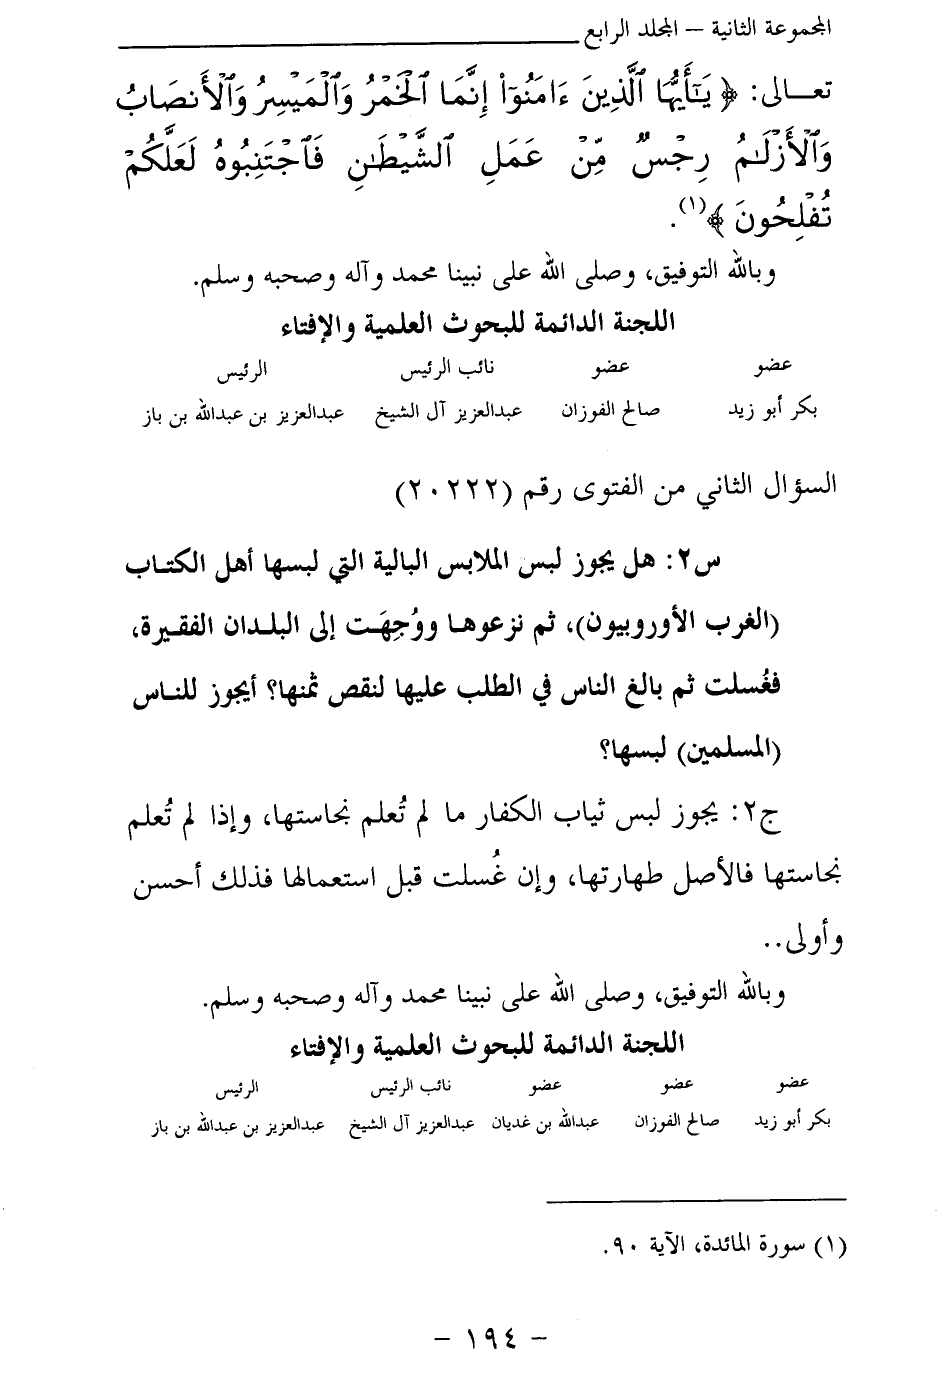 المجموعة الثانية – المجلد الرابع
تعـــالى: ﴿ يَٰٓأَيُّهَا ٱلَّذِينَ ءَامَنُوٓا۟ إِنَّمَا ٱلْخَمْرُ وَٱلْمَيْسِرُ وَٱلْأَنصَابُ
وَٱلْأَزْلَٰمُ رِجْسٌ مِّنْ عَمَلِ ٱلشَّيْطَٰنِ فَٱجْتَنِبُوهُ لَعَلَّكُمْ
تُفْلِحُونَ ﴾(١).
وبالله التوفيق، وصلى الله على نبينا محمد وآله وصحبه وسلم.
اللجنة الدائمة للبحوث العلمية والإفتاء
عضو عضو نائب الرئيس الرئيس
بكر أبو زيد صالح الفوزان عبدالعزيز آل الشيخ عبدالعزيز بن عبدالله بن باز
السؤال الثاني من الفتوى رقم (٢٠٢٢٢)
س٢: هل يجوز لبس الملابس البالية التي لبسها أهل الكتاب
(الغرب الأوروبيون)، ثم نزعوهـا ووُجِهَـت إلى البلـدان الفقـيرة،
فغُسلت ثم بالغ الناس في الطلب عليها لنقص ثمنها؟ أيجوز للنـاس
(المسلمين) لبسها؟
ج٢: يجوز لبس ثياب الكفار ما لم تُعلم نجاستها، وإذا لم تُعلم
نجاستها فالأصل طهارتها، وإن غُسلت قبل استعمالها فذلك أحسن
وأولى..
وبالله التوفيق، وصلى الله على نبينا محمد وآله وصحبه وسلم.
اللجنة الدائمة للبحوث العلمية والإفتاء
عضو عضو عضو نائب الرئيس الرئيس
بكر أبو زيد صالح الفوزان عبدالله بن غديان عبدالعزيز آل الشيخ عبدالعزيز بن عبدالله بن باز
(١) سورة المائدة، الآية ٩٠.
- ١٩٤ -